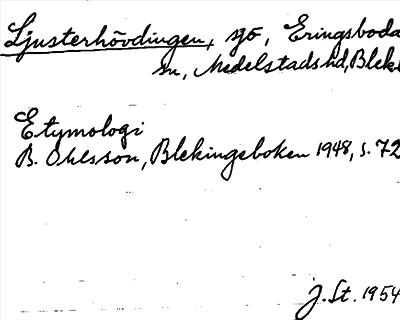 Ljusterhövdingen, sjö, Eringsboda
sn, Medelstads hd, Blek
Etymologi
B. Ohlsson, Blekingeboken 1948, s. 72
J. St. 1954